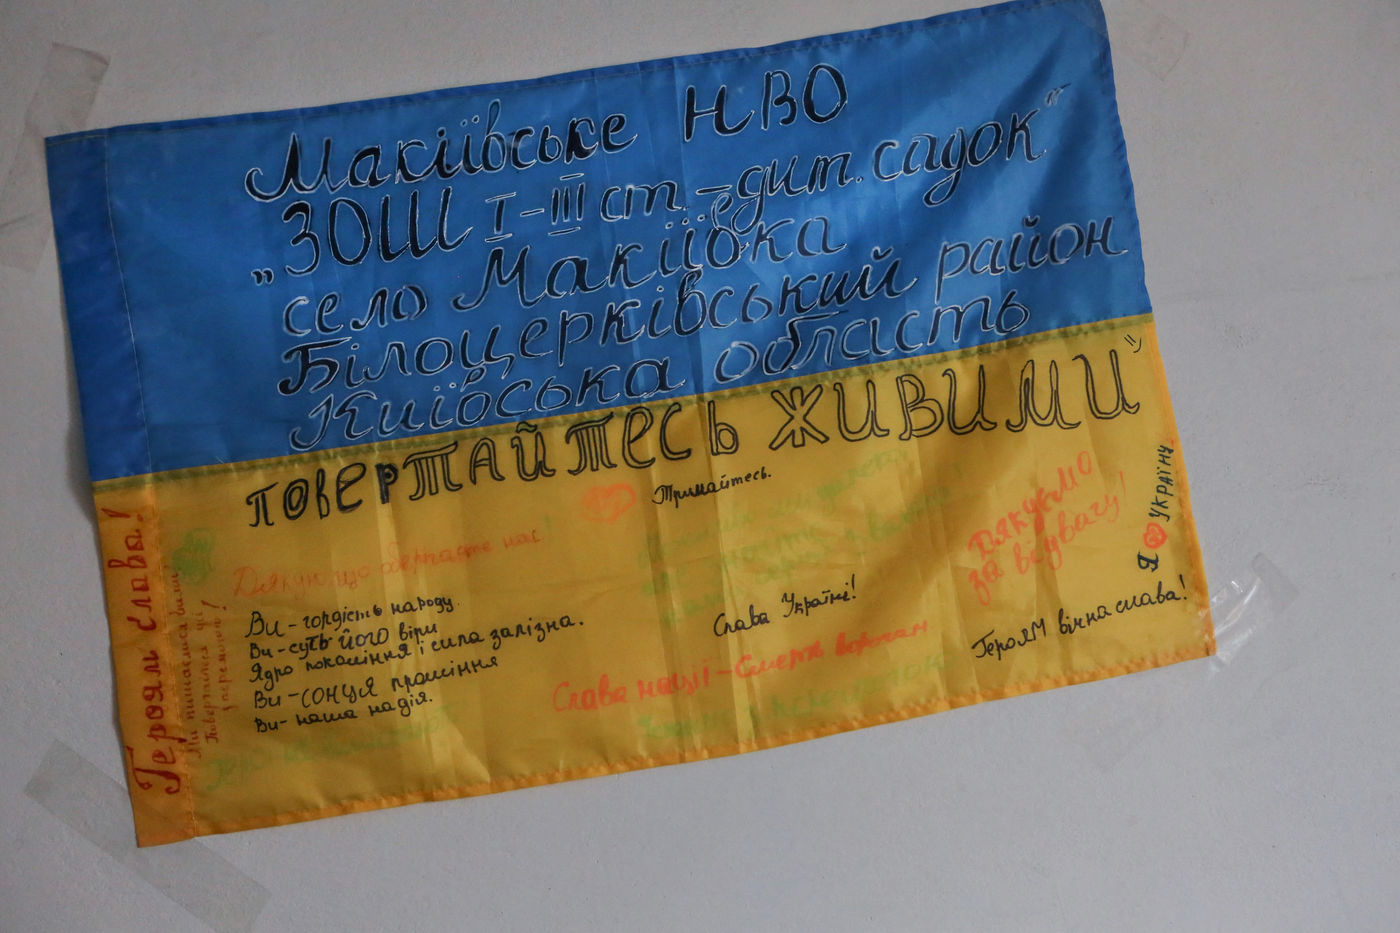 Макіївське НВО
„ЗОШ І-ІІІ ст.-дит. садок“
село Макіївка
Білоцерківський район
Київська область
ПОВЕРТАЙТЕСЬ ЖИВИМИ
Тримайтесь.
Дякую що оберігаєте нас!
ДЯКУЄМО
за відвагу!
Я УКРАЇНУ
Героям слава!
Ми пишаємися вами
Повертайтеся усі
з перемогою!
Ви - гордість народу.
Ви - суть його віри
Ядро покоління і сила залізна.
Ви - СОНЦЯ проміння
Ви - наша надія.
Слава Україні!
ГероЯМ вічна слава!
Слава нації - Смерть ворогам